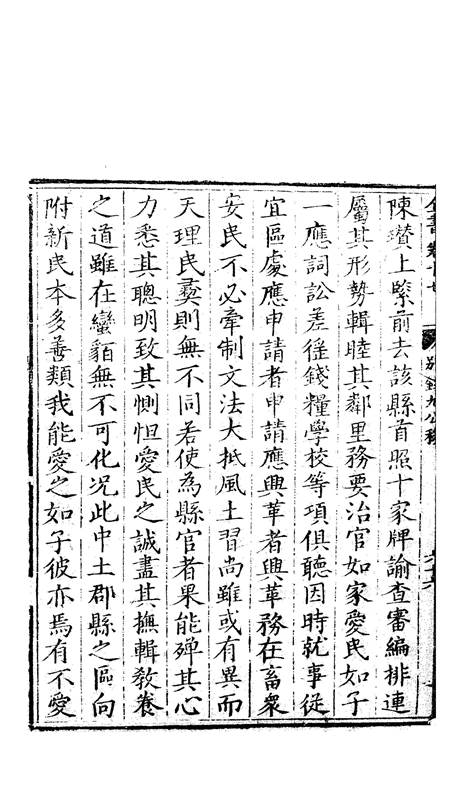 全書卷十七 別錄九公移 六十六
陳瓚上緊前去該縣首照十家牌諭查審編排連
屬其形勢輯睦其鄰里務要治官如家愛民如子
一應詞訟差徭錢糧學校等項俱聽因時就事從
宜區處應申請者申請應興革者興革務在畜衆
安民不必牽制文法大抵風土習尚雖或有異而
天理民彝則無不同若使為縣官者果能殫其心
力悉其聰明致其惻怛愛民之誠盡其撫輯敎養
之道雖在蠻貊無不可化况此中土郡縣之區向
附新民本多善類我能愛之如子彼亦焉有不愛